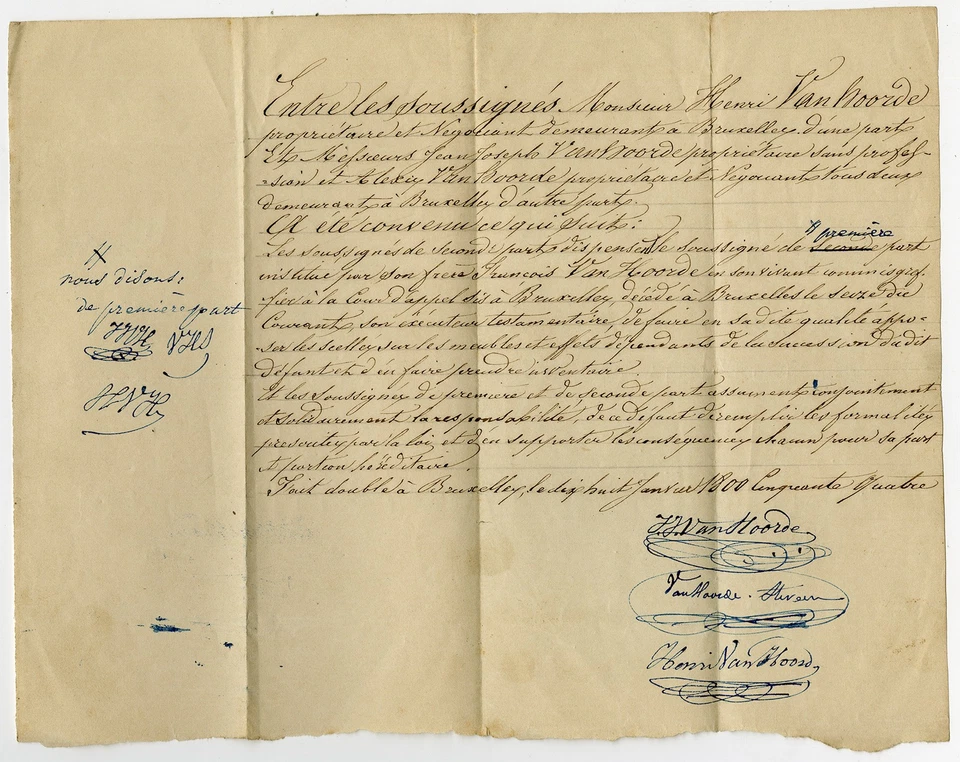 Entre les soussignés Monsieur Henri Van hoorde
propriétaire et Negociant demeurant à Bruxelles d'une part
Et Messieurs Jean Joseph Van hoorde propriétaire sans profes-
-sion et Alexis Van hoorde propriétaire et Negociant tous deux
demeurant à Bruxelles d'autre part.
A été convenu ce qui suit:
Les soussignés de seconde part dispensent le soussigné de seconde part
première
institué par son frère François Van Hoorde en son vivant commis gref-
fier à la Cour d'appel sis à Bruxelles, décédé à Bruxelles le seize du
Courant, son exécuteur testamentaire, de faire en sa dite qualité appo-
ser les scelles sur les meubles et effets dépendants de la succession du dit
défunt et d'en faire prendre inventaire.
Et les soussignés de première et de seconde part assument conjointement
et solidairement la responsabilité, de ce défaut de remplir les formalités
prescrites par la loi, et d'en supporter les conséquences chacun pour sa part
et portion héréditaire.
Fait double à Bruxelles, le dix huit Janvier 1800 Cinquante Quatre
nous disons:
de première part
HVH VHS
JJVH
J.J. Van Hoorde
Van Hoorde - Steven
Henri Van Hoorde